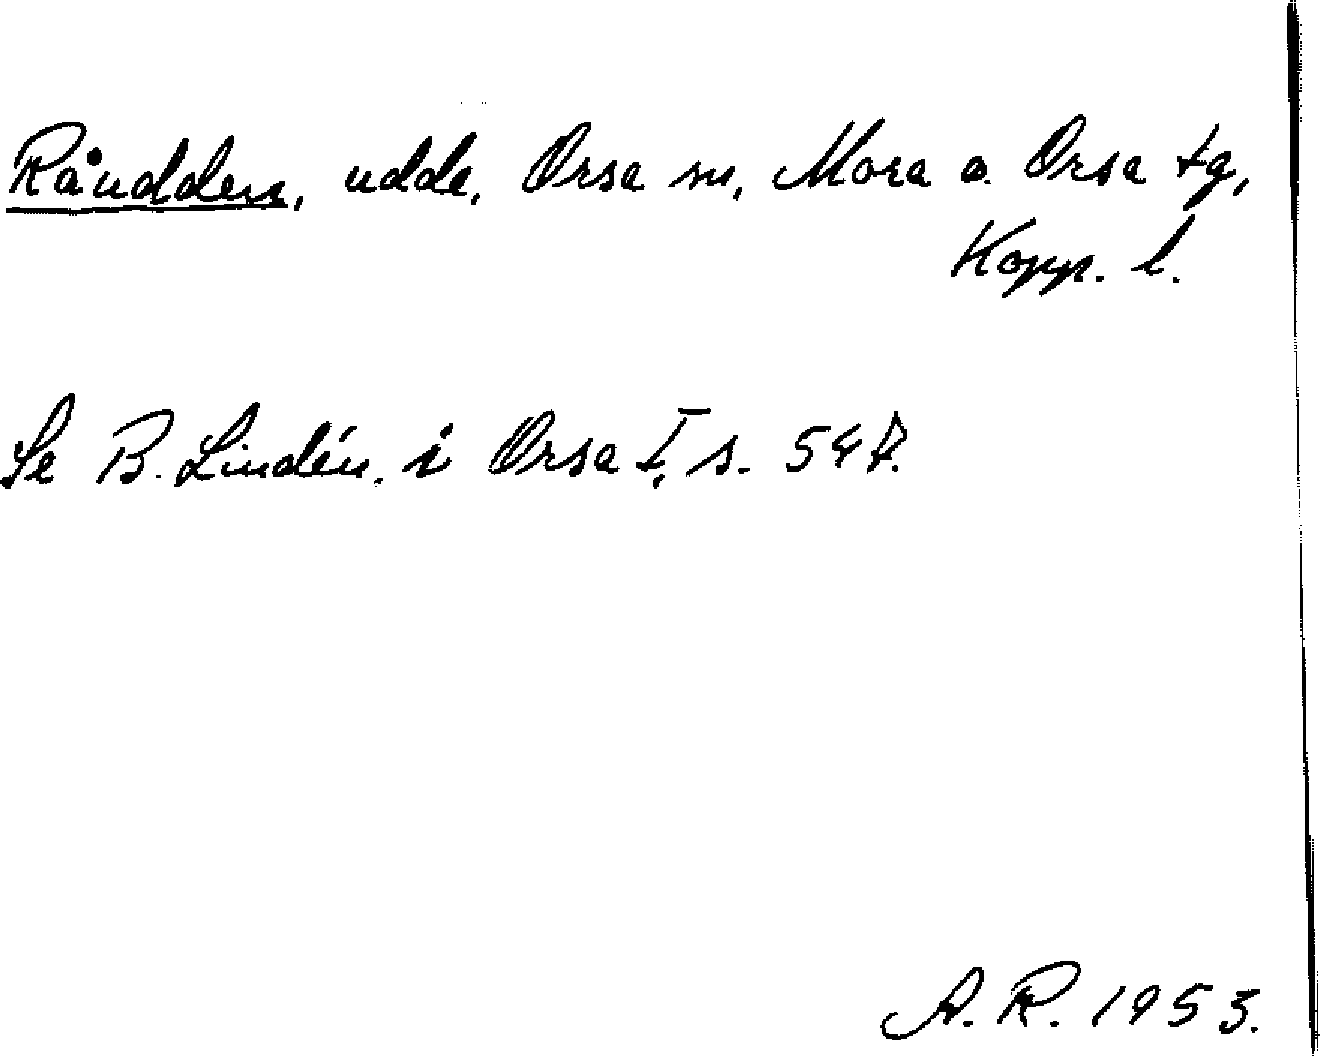 Råudden, udde, Orsa sn, Mora o. Orsa tg,
Kopp. l.
Se B. Lindén i Orsa I, s.
A. R. 1953.